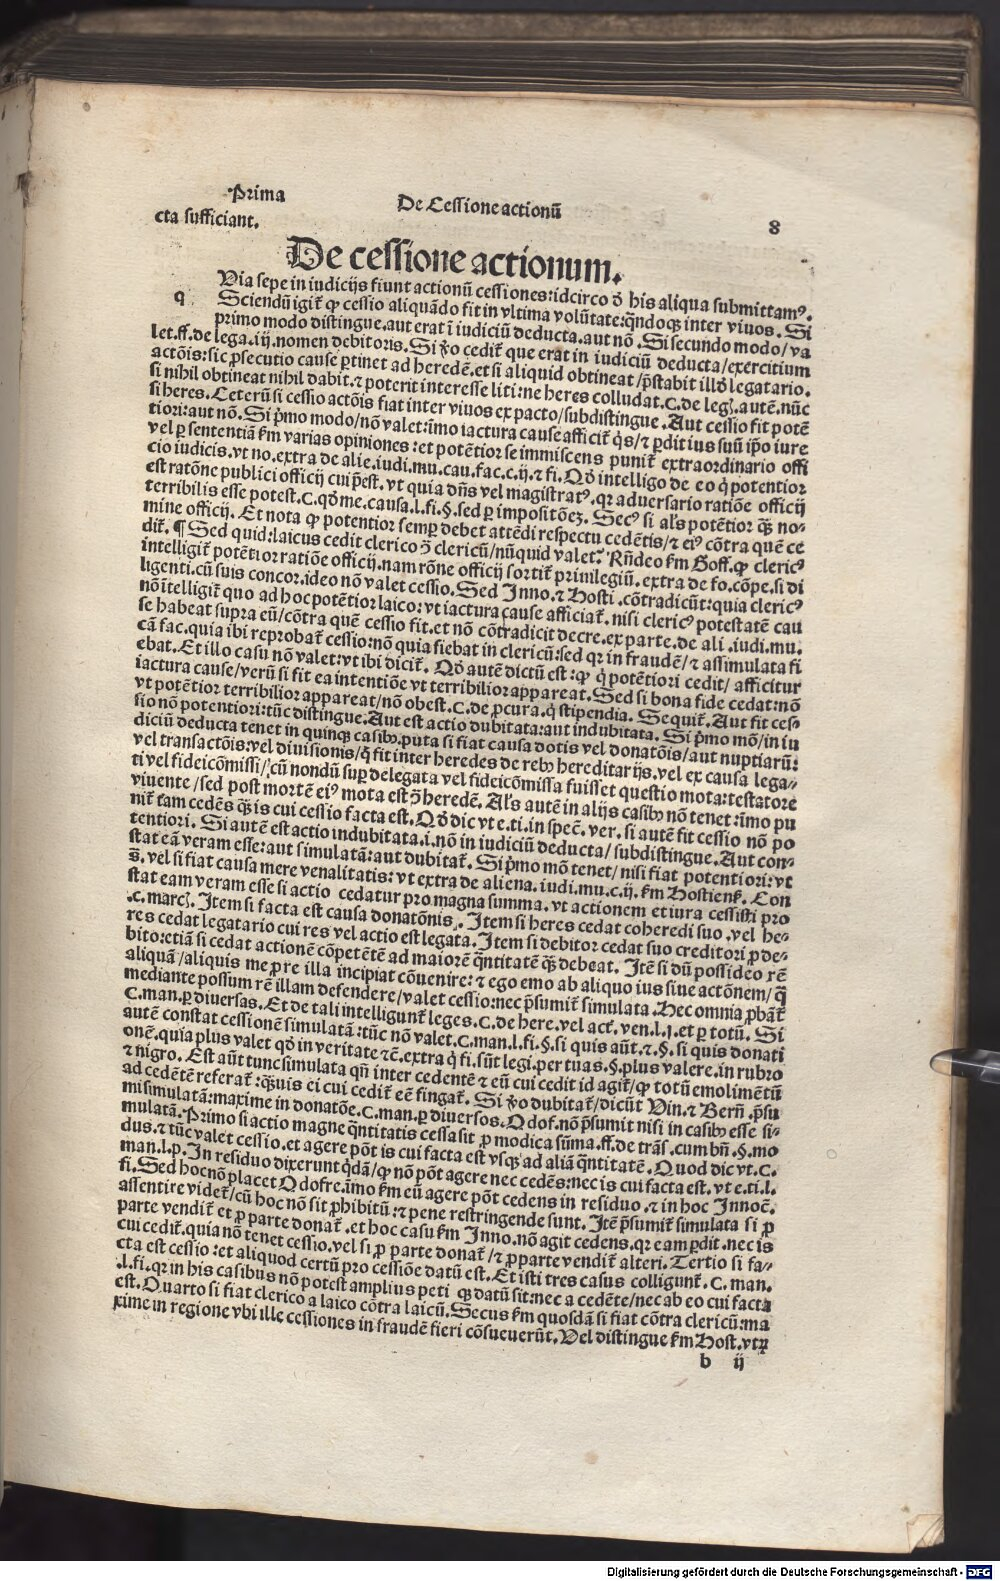 Prima
De Cessione actionū
8
cta sufficiant.
De cessione actionum.
Via sepe in iudicijs fiunt actionū cessiones: idcirco đ his aliqua submittamꝰ.
q Sciendū igit̄ ꝙ cessio aliquādo fit in vltima volūtate: qñdoqꝫ inter viuos. Si
primo modo distingue. aut erat ī iudiciū deducta. aut nō. Si secundo modo / va
let. ff. de lega. iij. nomen debitoris. Si ꝟo cedit̄ que erat in iudiciū deducta / exercitium
actōis: sic ꝓsecutio cause ꝑtinet ad heredē. et si aliquid obtineat / p̄stabit illđ legatario.
si nihil obtineat nihil dabit. ⁊ poterit interesse liti: ne heres colludat. C. de leg̣. autē. nūc
si heres. Ceterū si cessio actōis fiat inter viuos ex pacto / subdistingue. Aut cessio fit potē
tiori: aut nō. Si p̄mo modo / nō valet: īmo iactura cause afficit̄ q̇s / ⁊ ꝑdit ius suū ip̄o iure
vel ꝑ sententiā fm varias opiniones: et potētior se immiscens punit̄ extraordinario offi
cio iudicis. vt no. extra de alie. iudi. mu. cau. fac. c. ij. ⁊ fi. Qđ intelligo de eo q̇ potentior
est ratōne publici officij cui p̄est. vt quia dn̄s vel magistratꝰ. qr aduersario ratiōe officij
terribilis esse potest. C. qđ me. causa. l. fi. §. sed ꝑ impositōeꝫ. Secꝰ si al's potētior qꝫ no-
mine officij. Et nota ꝙ potentior semꝑ debet attēdi respectu cedētis / ⁊ eiꝰ cōtra quē ce
dit̄. ¶ Sed quid: laicus cedit clerico ꝯ̄ clericū / nūquid valet? Rn̄deo fm Goff. ꝙ clericꝰ
intelligit̄ potētior ratiōe officij. nam rōne officij sortit̄ priuilegiū. extra de fo. cōpe. si di
ligenti. cū suis concor. ideo nō valet cessio. Sed Inno. ⁊ Hosti. cōtradicūt: quia clericꝰ
nō ītelligit̄ quo ad hoc potētior laico: vt iactura cause afficiat̄. nisi clericꝰ potestatē cau
se habeat supra eū / cōtra quē cessio fit. et nō cōtradicit decre. ex parte. de ali. iudi. mu.
cā fac. quia ibi reprobat̄ cessio: nō quia fiebat in clericū: sed qr in fraudē / ⁊ assimulata fi
ebat. Et illo casu nō valet: vt ibi dicit̄. Qđ autē dictū est: ꝙ q̇ potētiori cedit / afficitur
iactura cause / verū si fit ea intentiōe vt terribilior appareat. Sed si bona fide cedat: nō
vt potētior terribilior appareat / nō obest. C. de ꝓcura. q̇ stipendia. Sequit̄. Aut fit ces-
sio nō potentiori: tūc distingue. Aut est actio dubitata: aut indubitata. Si p̄mo mō / in iu
diciū deducta tenet in quinqꝫ casibꝫ. puta si fiat causa dotis vel donatōis / aut nuptiarū:
vel transactōis: vel diuisionis / q̇ fit inter heredes de rebꝫ hereditarijs. vel ex causa lega-
ti vel fideicōmissi / cū nondū suꝑ delegata vel fideicōmissa fuisset questio mota: testatore
viuente / sed post mortē eiꝰ mota est ꝯ̄ heredē. Al's autē in alijs casibꝫ nō tenet: īmo pu
nit̄ tam cedēs qꝫ is cui cessio facta est. Qđ dic vt e. ti. in spec̄. ver. si autē fit cessio nō po
tentiori. Si autē est actio indubitata. i. nō in iudiciū deducta / subdistingue. Aut con-
stat eā veram esse: aut simulatā: aut dubitat̄. Si p̄mo mō tenet / nisi fiat potentiori: vt
s̄. vel si fiat causa mere venalitatis: vt extra de aliena. iudi. mu. c. ij. fm Hostienſ. Con
stat eam veram esse si actio cedatur pro magna summa. vt actionem et iura cessisti pro
.c. marcꝫ. Item si facta est causa donatōnis. Item si heres cedat coheredi suo. vel he-
res cedat legatario cui res vel actio est legata. Item si debitor cedat suo creditori ꝓ de-
bito: etiā si cedat actionē cōpetētē ad maiorē q̄ntitatē qꝫ debeat. Itē si dū possideo rē
aliquā / aliquis me ꝓ re illa incipiat cōuenire: ⁊ ego emo ab aliquo ius siue actōnem / q̄
mediante possum rē illam defendere / valet cessio: nec p̄sumit̄ simulata. Hec omnia ꝓbāt̄
C. man. ꝑ diuersas. Et de tali intelligunt̄ leges. C. de here. vel act̄. ven. l. j. et ꝑ totū. Si
autē constat cessionē simulatā: tūc nō valet. C. man. l. fi. §. si quis aūt. ⁊ §. si quis donati
onē. quia plus valet qđ in veritate ⁊c̄. extra q̇ fi. sūnt legi. per tuas. §. plus valere. in rubro
⁊ nigro. Est aūt tunc simulata qn̄ inter cedentē ⁊ eū cui cedit id agit̄ / ꝙ totū emolimētū
ad cedētē referat̄: q̄ꝫuis ei cui cedit̄ eē fingat̄. Si ꝟo dubitat̄ / dicūt Vin. ⁊ Bern̄. p̄su
mi simulatā: maxime in donatōe. C. man. ꝑ diuersos. Odof. nō p̄sumit nisi in casibꝫ esse si-
mulatā. Primo si actio magne q̄ntitatis cessa sit ꝓ modica sūma. ff. de trās̄. cum hn̄. §. mo
dus. ⁊ tūc valet cessio. et agere pōt is cui facta est vsqꝫ ad aliā q̄ntitatē. Quod dic vt. C.
man. l. p. In residuo dixerunt q̇dā / ꝙ nō pōt agere nec cedēs: nec is cui facta est. vt e. ti. l.
fi. Sed hoc nō placet Odofre. īmo fm eū agere pōt cedens in residuo. ⁊ in hoc Innoc̄.
assentire videt̄ / cū hoc nō sit ꝓhibitū: ⁊ pene restringende sunt. Itē p̄sumit̄ simulata si ꝓ
parte vendit̄ et ꝓ parte donat̄. et hoc casu fm Inno. nō agit cedens. qr eam ꝑdit. nec is
cui cedit̄. quia nō tenet cessio. vel si ꝓ parte donat̄ / ⁊ ꝓ parte vendit̄ alteri. Tertio si fa-
cta est cessio: et aliquod certū pro cessiōe datū est. Et isti tres casus colligunt̄. C. man.
.l. fi. qr in his casibus nō potest amplius peti qꝫ datū sit: nec a cedēte / nec ab eo cui facta
est. Quarto si fiat clerico a laico cōtra laicū. Secus fm quosdā si fiat cōtra clericū: ma
xime in regione vbi ille cessiones in fraudē fieri cōsueuerūt. Vel distingue fm Host. vtꝝ
b ij
Digitalisierung gefördert durch die Deutsche Forschungsgemeinschaft - DFG